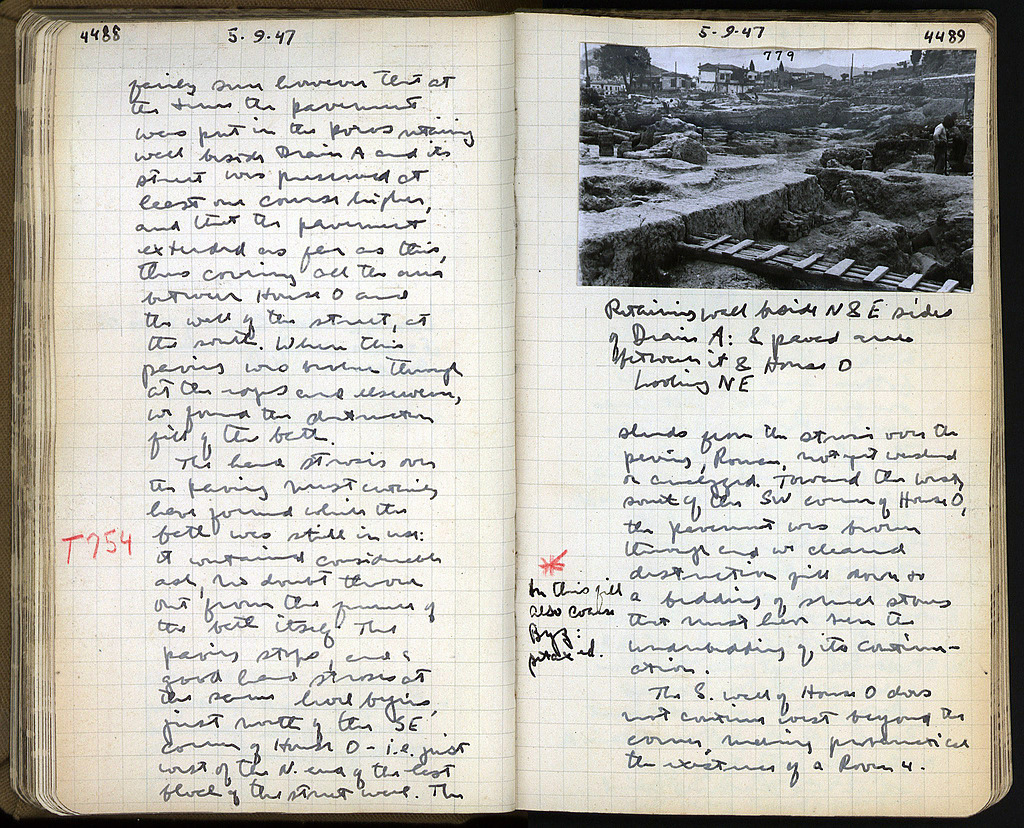 4488
5.9.47
fairly sure however that at
the time the pavement
was put in the poros retaining
wall beside Drain A and its
street was preserved at
least one course higher,
and that the pavement
extended as far as this,
thus covering all the area
between House O and
the wall of the street, at
the south. Where this
paving was broken through
at the edges and elsewhere,
we found the destruction
fill of the bath.
The hard strosis over
the paving must certainly
have formed while the
bath was still in use:
T754
it contained considerable
ash, no doubt thrown
out from the furnace of
the bath itself. The
paving stops, and a
good hard strosis at
the same level begins,
just north of the SE
corner of House O - i.e. just
west of the N. end of the last
block of the street wall. The
5-9-47
4489
779
Retaining wall beside N & E sides
of Drain A: & paved area
between it & House O
Looking NE
sherds from the strosis over the
paving, Roman, not yet washed
or catalogued. Toward the west,
south of the SW corner of House O,
the pavement was broken
through and we cleared
destruction fill down to
a bedding of small stones
that must have been the
underbedding of its continu-
ation.
In this fill
also coarse
Byz.
The S. wall of House O does
not continue west beyond the
corner, making problematical
the existence of a Room 4.